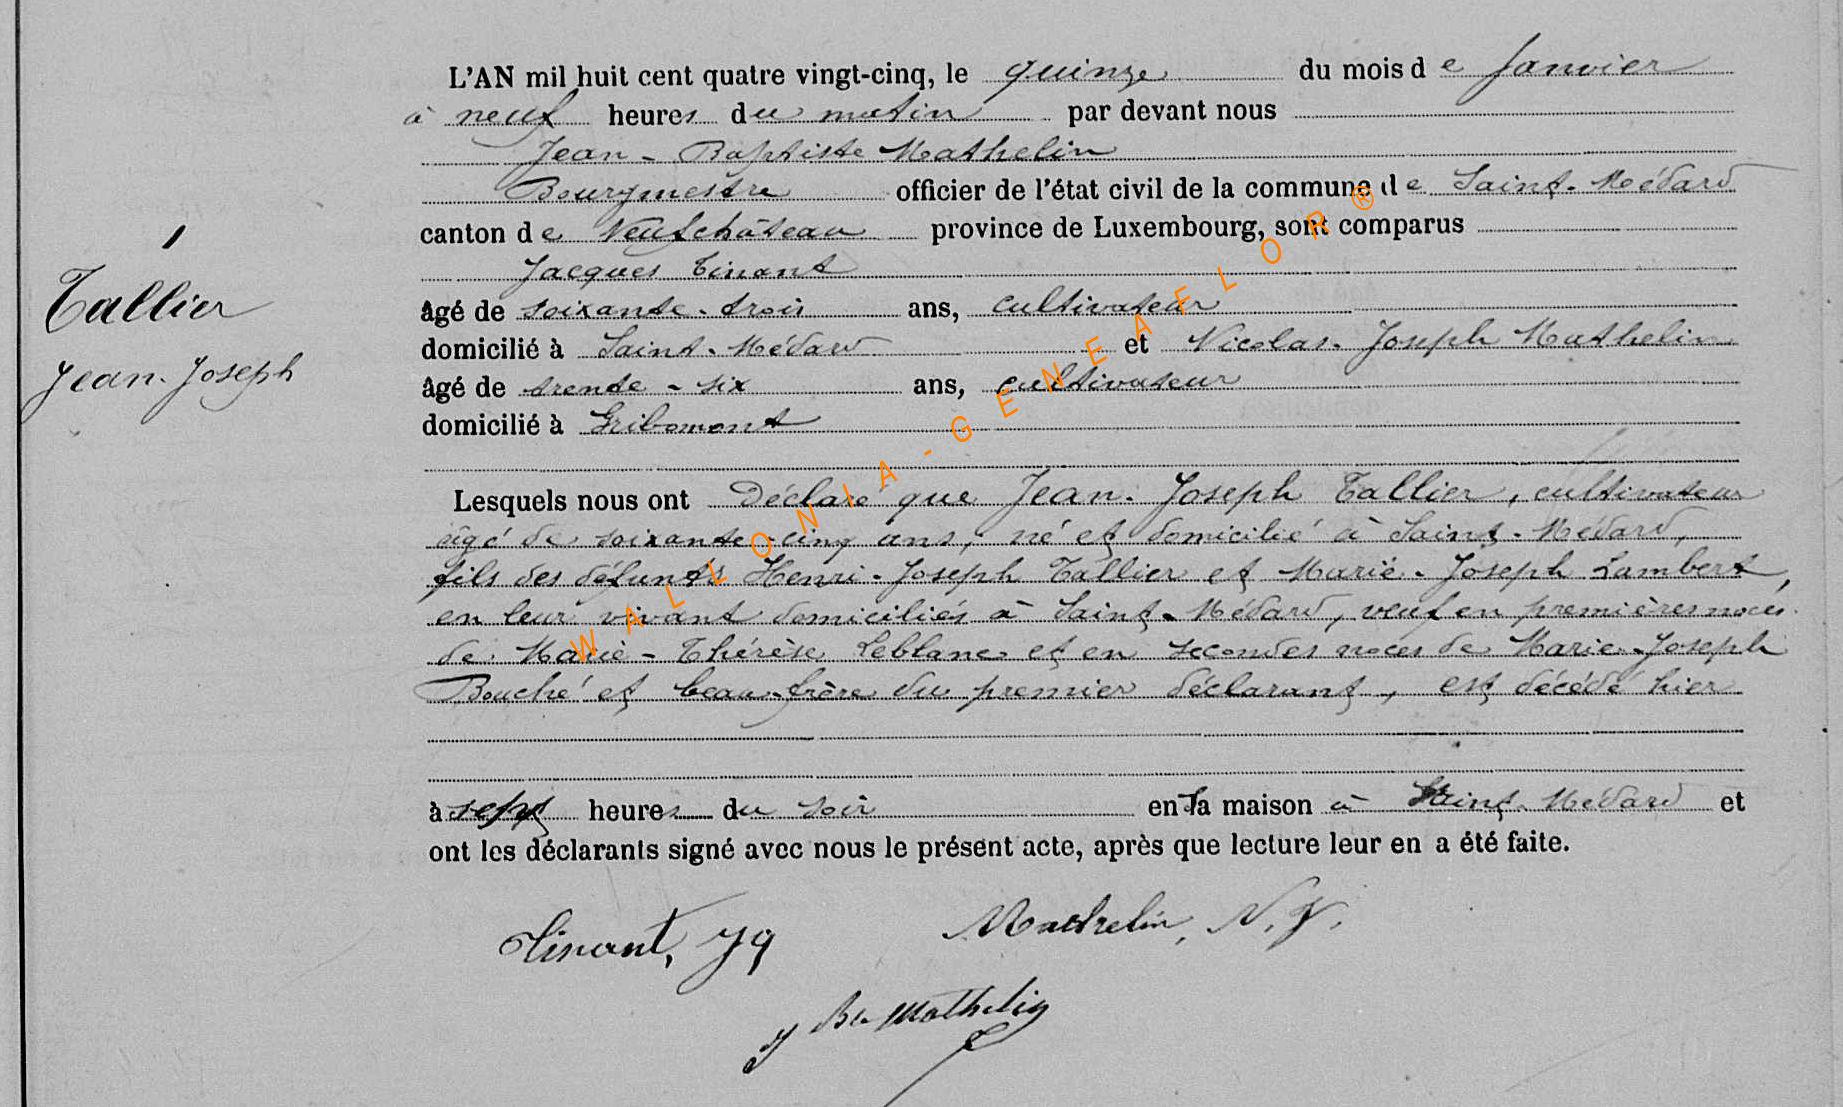 L'AN mil huit cent quatre vingt-cinq, le quinze du mois de Janvier
à neuf heures du matin par devant nous
Jean-Baptiste Mathelin
Bourgmestre officier de l'état civil de la commune de Saint-Médard
canton de Neufchâteau province de Luxembourg, sont comparus
Jacques Tinant
âgé de soixante-trois ans, cultivateur
domicilié à Saint-Médard et Nicolas-Joseph Mathelin
âgé de trente-six ans, cultivateur
domicilié à Gribomont
1
Tallier
Jean-Joseph
Lesquels nous ont déclaré que Jean-Joseph Tallier, cultivateur
âgé de soixante-cinq ans, né et domicilié à Saint-Médard,
fils des défunts Henri-Joseph Tallier et Marie-Joseph Lambert,
en leur vivant domiciliés à Saint-Médard, veuf en premières noces
de Marie-Thérèse Leblanc et en secondes noces de Marie-Joseph
Bouché et beau-frère du premier déclarant, est décédé hier
à sept heures du soir en sa maison à Saint-Médard et
ont les déclarants signé avec nous le présent acte, après que lecture leur en a été faite.
Tinant, Jq Mathelin, N. J.
J Bte Mathelin
WALLONIA-GENEAFLOR®